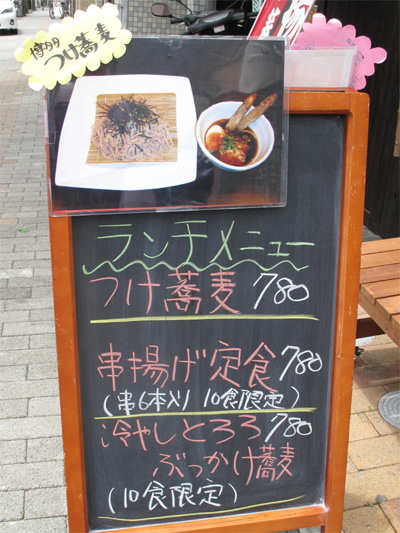 博多
つけ蕎麦
ランチメニュー
つけ蕎麦 780
串揚げ定食 780
(串6本入り 10食限定)
冷やしとろろ 780
ぶっかけ蕎麦
(10食限定)